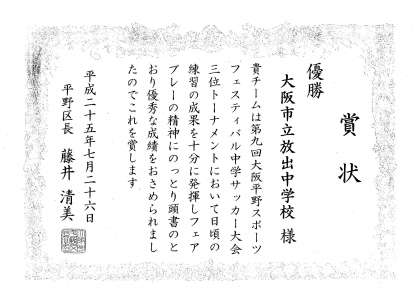 賞状
優勝
大阪市立放出中学校 様
貴チームは第九回大阪平野スポーツ
フェスティバル中学サッカー大会
三位トーナメントにおいて日頃の
練習の成果を十分に発揮しフェア
プレーの精神にのっとり頭書のと
おり優秀な成績をおさめられまし
たのでこれを賞します
平成二十五年七月二十六日
平野区長 藤井 清美